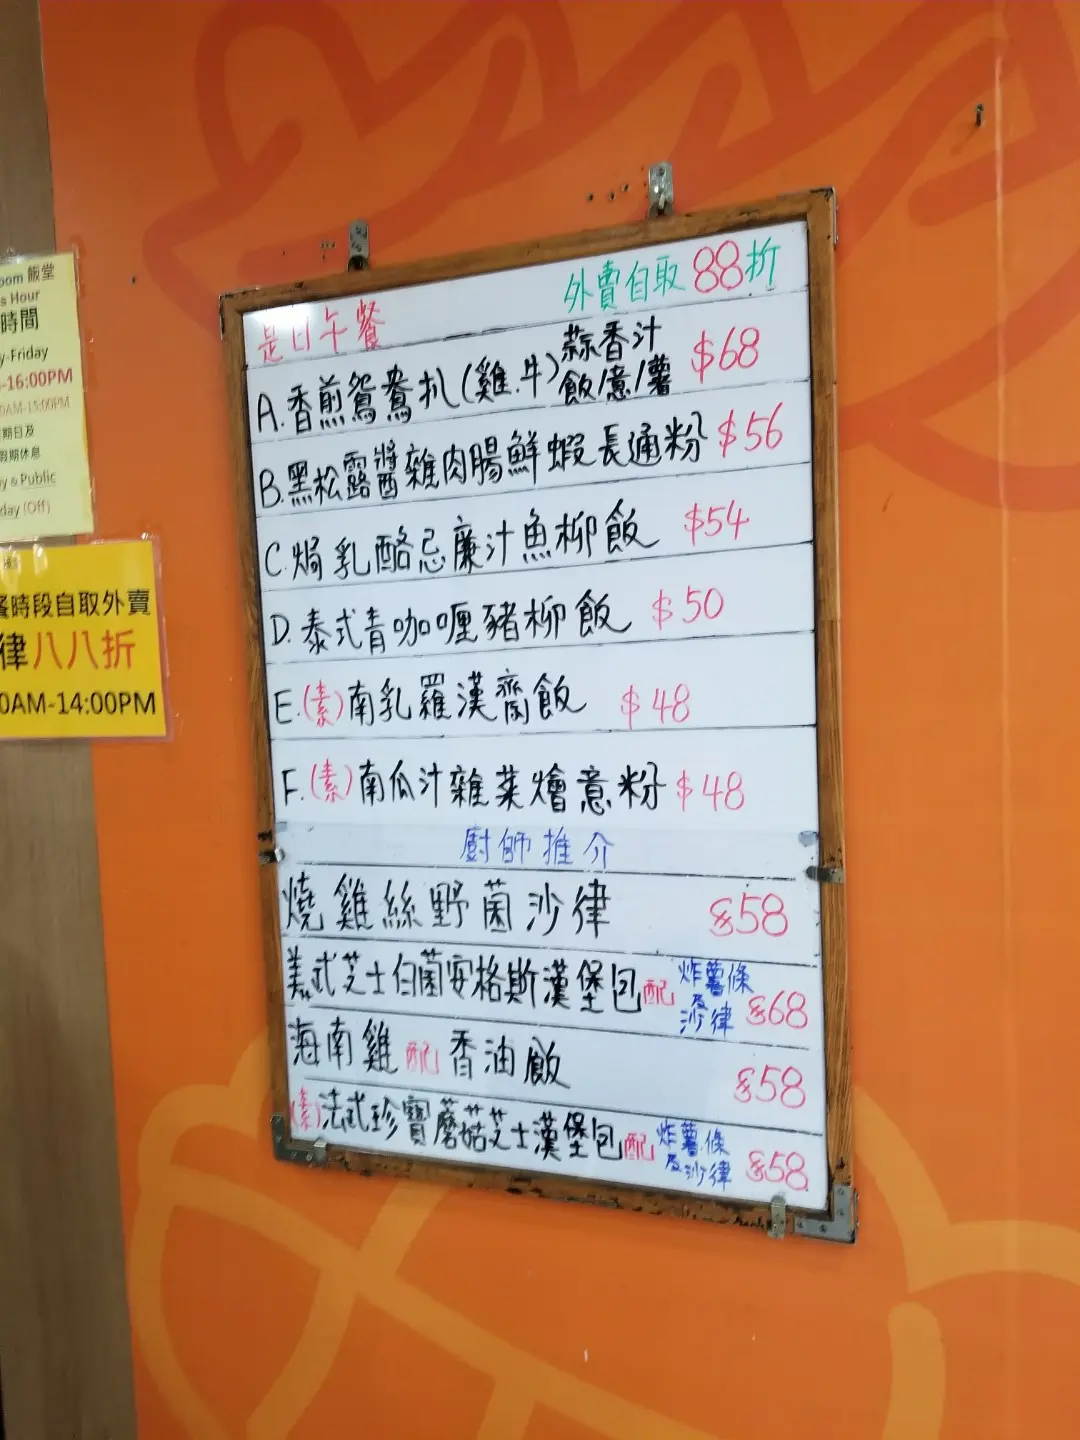 oom 飯堂
s Hour
時間
y-Friday
-16:00PM
0AM-15:00PM
期日及
假期休息
y & Public
day (Off)
餐時段自取外賣
律八八折
0AM-14:00PM
外賣自取 88折
是日午餐
A. 香煎鴛鴦扒(雞.牛)蒜香汁 飯/意/薯 $68
B. 黑松露醬雜肉腸鮮蝦長通粉 $56
C. 焗乳酪忌廉汁魚柳飯 $54
D. 泰式青咖喱豬柳飯 $50
E. (素)南乳羅漢齋飯 $48
F. (素)南瓜汁雜菜燴意粉 $48
廚師推介
燒雞絲野菌沙律 $58
美式芝士白菌安格斯漢堡包配 炸薯條及沙律 $68
海南雞配香油飯 $58
(素)法式珍寶蘑菇芝士漢堡包配 炸薯條及沙律 $58